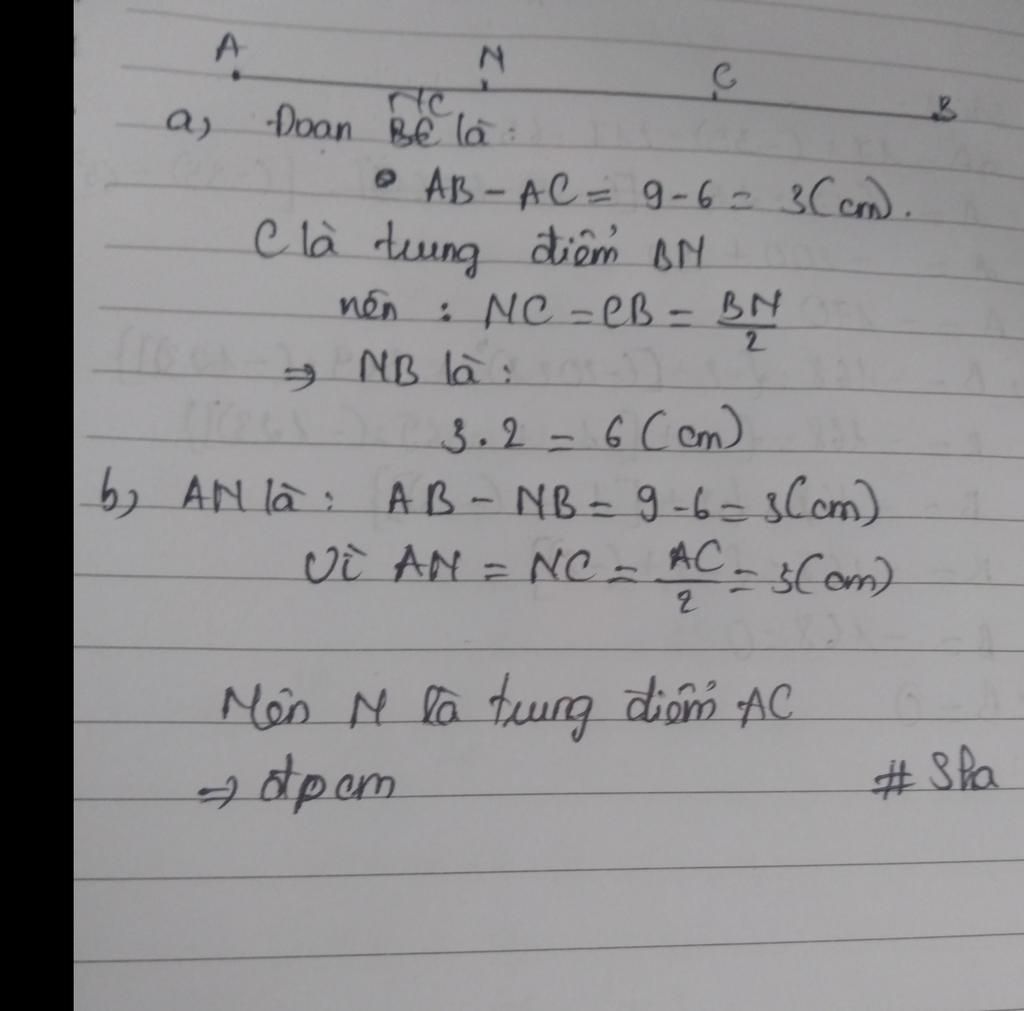 A N C B
NC
a, Đoạn BC là:
AB - AC = 9 - 6 = 3(cm).
C là trung điểm BN
nên : NC = CB = BN/2
⇒ NB là:
3.2 = 6 (cm)
b, AN là: AB - NB = 9 - 6 = 3(cm)
Vì AN = NC = AC/2 = 3(cm)
Nên N là trung điểm AC
⇒ đpcm # Sha